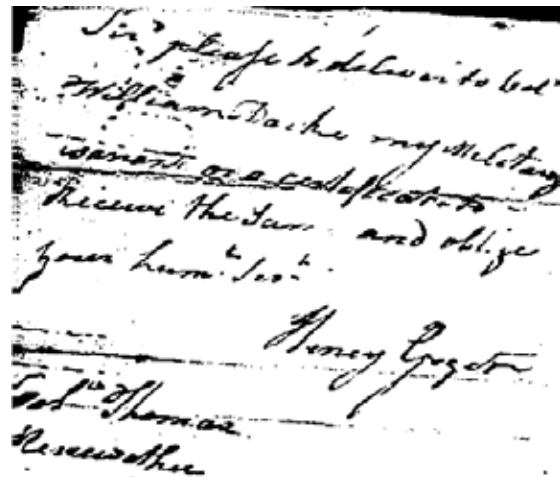 Sir please to deliver to Colo
William Dacke my Military
warrant or a certificate to
Receive the Sum and oblige
your humle Servt
Henry
Colo Thomas
Meriwether